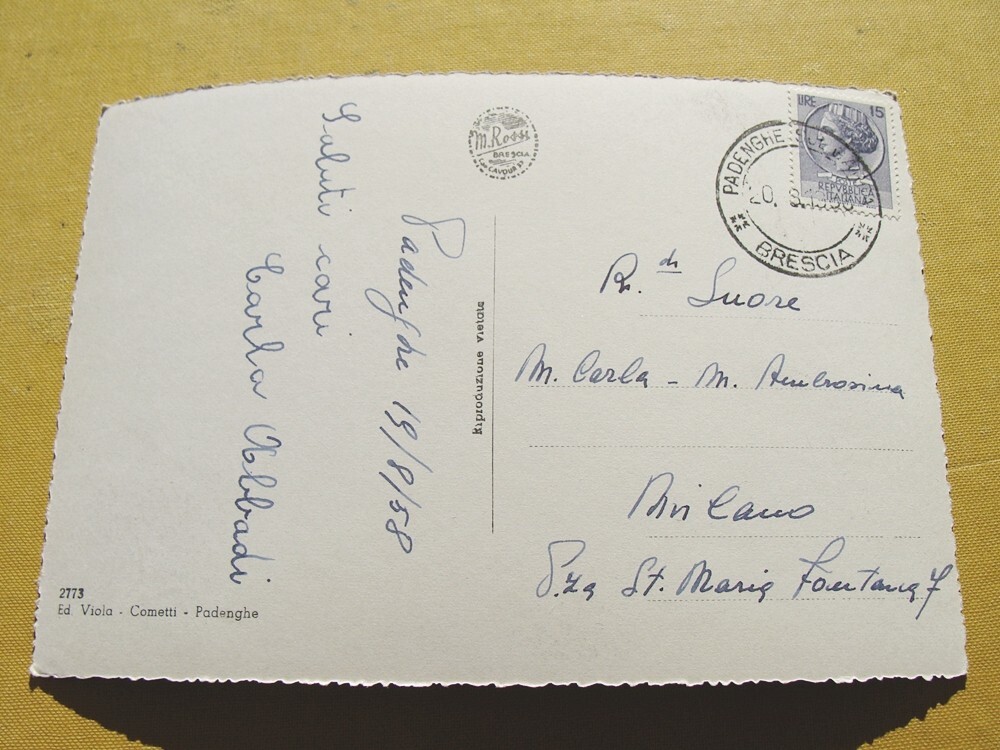 Padenghe 19/8/58
Saluti cari
Carla Abbadi
M. Rossi
BRESCIA
C.so CAVOUR 37
Riproduzione vietata
LIRE 15
POSTE
REPUBBLICA
ITALIANA
PADENGHE
20. 8.1958
BRESCIA
R. di Suore
M. Carla - M. Ambrosina
Milano
P.za St. Maria Fontana 7
2773
Ed. Viola - Cometti - Padenghe